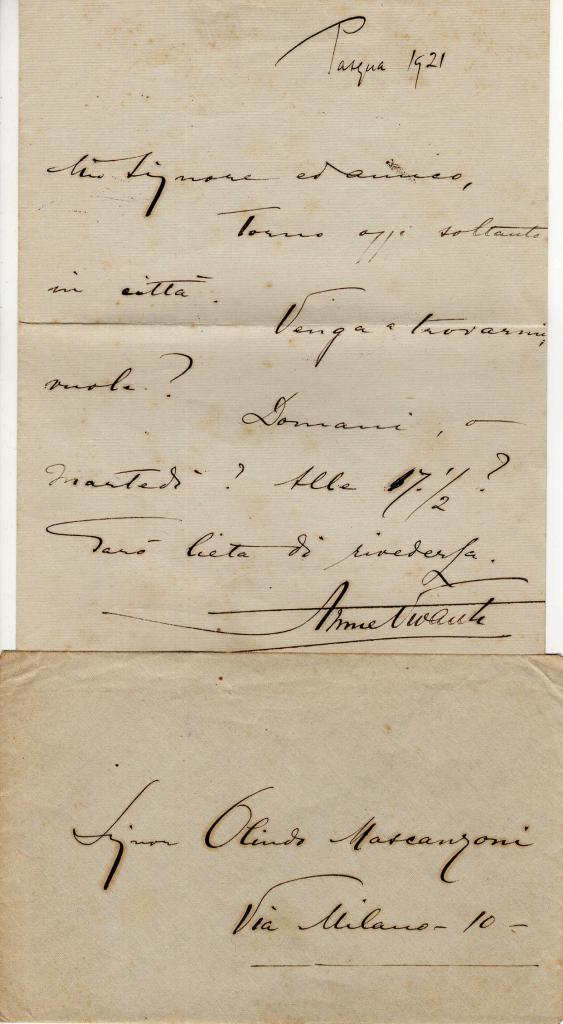 Pasqua 1921
Mio Signore ed amico,
Torno oggi soltanto
in città.
Venga a trovarmi,
vuole?
Domani, o
martedì? Alle 17.1/2?
Sarò lieta di rivederla.
Annie Vivanti
Signor Olindo Mascanzoni
Via Milano - 10 -